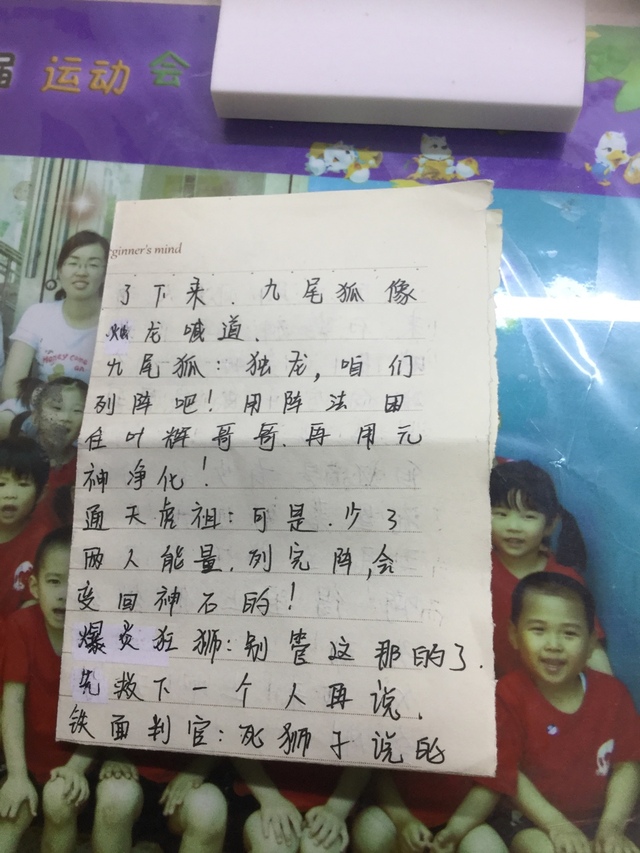 届 运动会
ginner's mind
了下来.九尾狐像
烛龙喊道.
九尾狐:独龙,咱们
列阵吧!用阵法困
住叶辉哥哥.再用元
神净化!
通天虎祖:可是.少了
两人能量.列完阵,会
变回神石的!
爆炎狂狮:别管这那的了.
先救下一个人再说.
铁面判官:死狮子说的